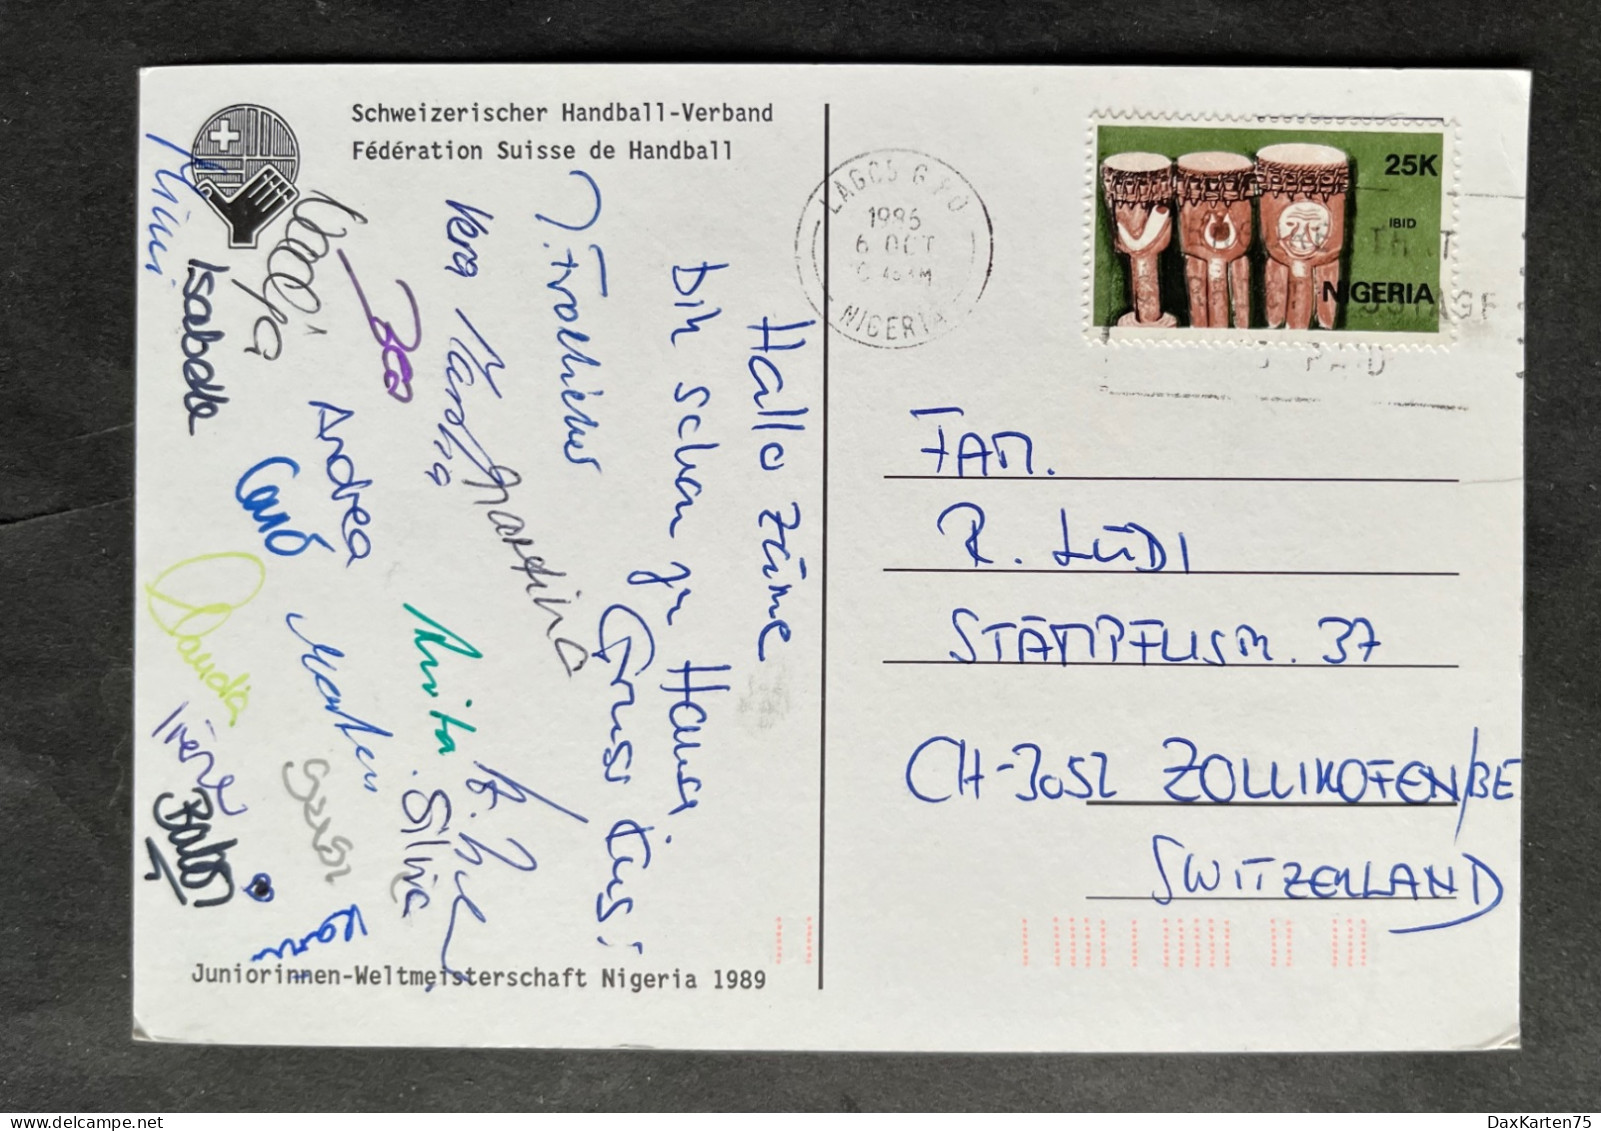 Schweizerischer Handball-Verband
Fédération Suisse de Handball
Hallo zäme
Bin schon zu Hause
Gruss
Vera
Martina
Bea
Isabelle
Andrea
Caro
Claudia
Anita
Silvie
Irene
Karin
Juniorinnen-Weltmeisterschaft Nigeria 1989
LAGOS G.P.O
6 OCT
NIGERIA
25K
IBID
NIGERIA
THAT
POSTAGE
IS PAID
FAM.
R. LÜDI
STÄMPFLISTR. 37
CH-3052 ZOLLIKOFEN/BE
SWITZERLAND
DaxKarten75